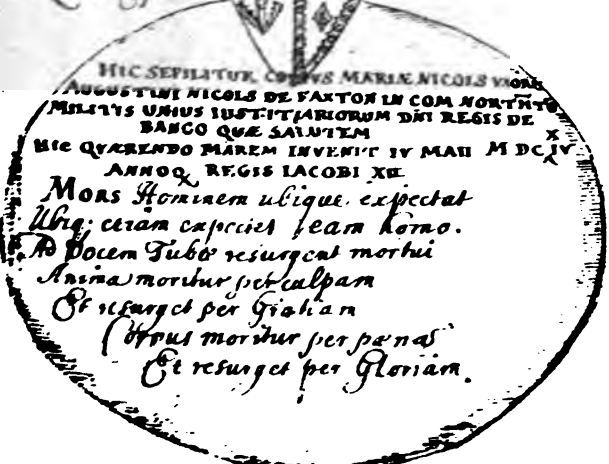 HIC SEPILITUR CORPVS MARIÆ NICOLS VXORIS
AUGUSTINI NICOLS DE FAXTON IN COM NORTHTO
MILITIS UNIUS IUSTITJARIORUM DNI REGIS DE
BANCO QUÆ SALUTEM
HIC QVÆRENDO MAREM INVENIT IV MAII M DC X IV
ANNOQ REGIS IACOBI XII
MORS Hominem ubique expectat
Ubiq: etiam expectet eam homo.
Ad Vocem Tubæ resurgent mortui
Anima moritur per culpam
Et resurget per Gratiam
Corpus moritur per pænas
Et resurget per Gloriam.